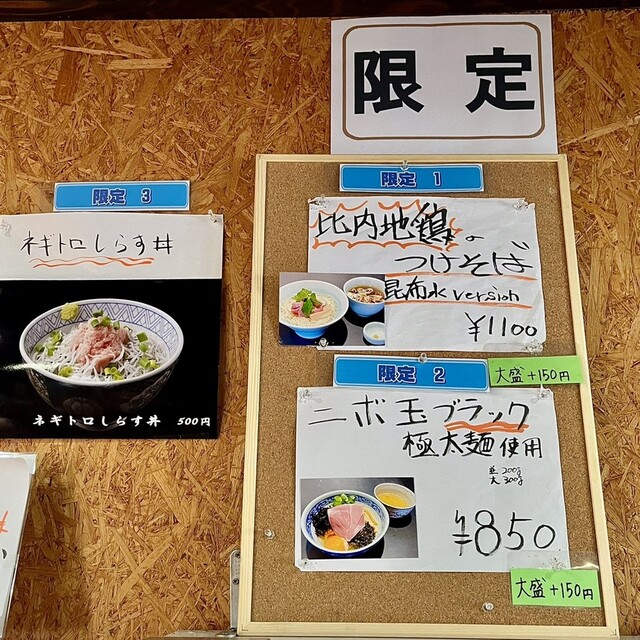 限定
限定 3
ネギトロしらす丼
ネギトロしらす丼 500円
限定 1
比内地鶏の
つけそば
昆布水 version
¥1100
大盛+150円
限定 2
ニボ玉ブラック
極太麺使用
並200g
大300g
¥850
大盛+150円